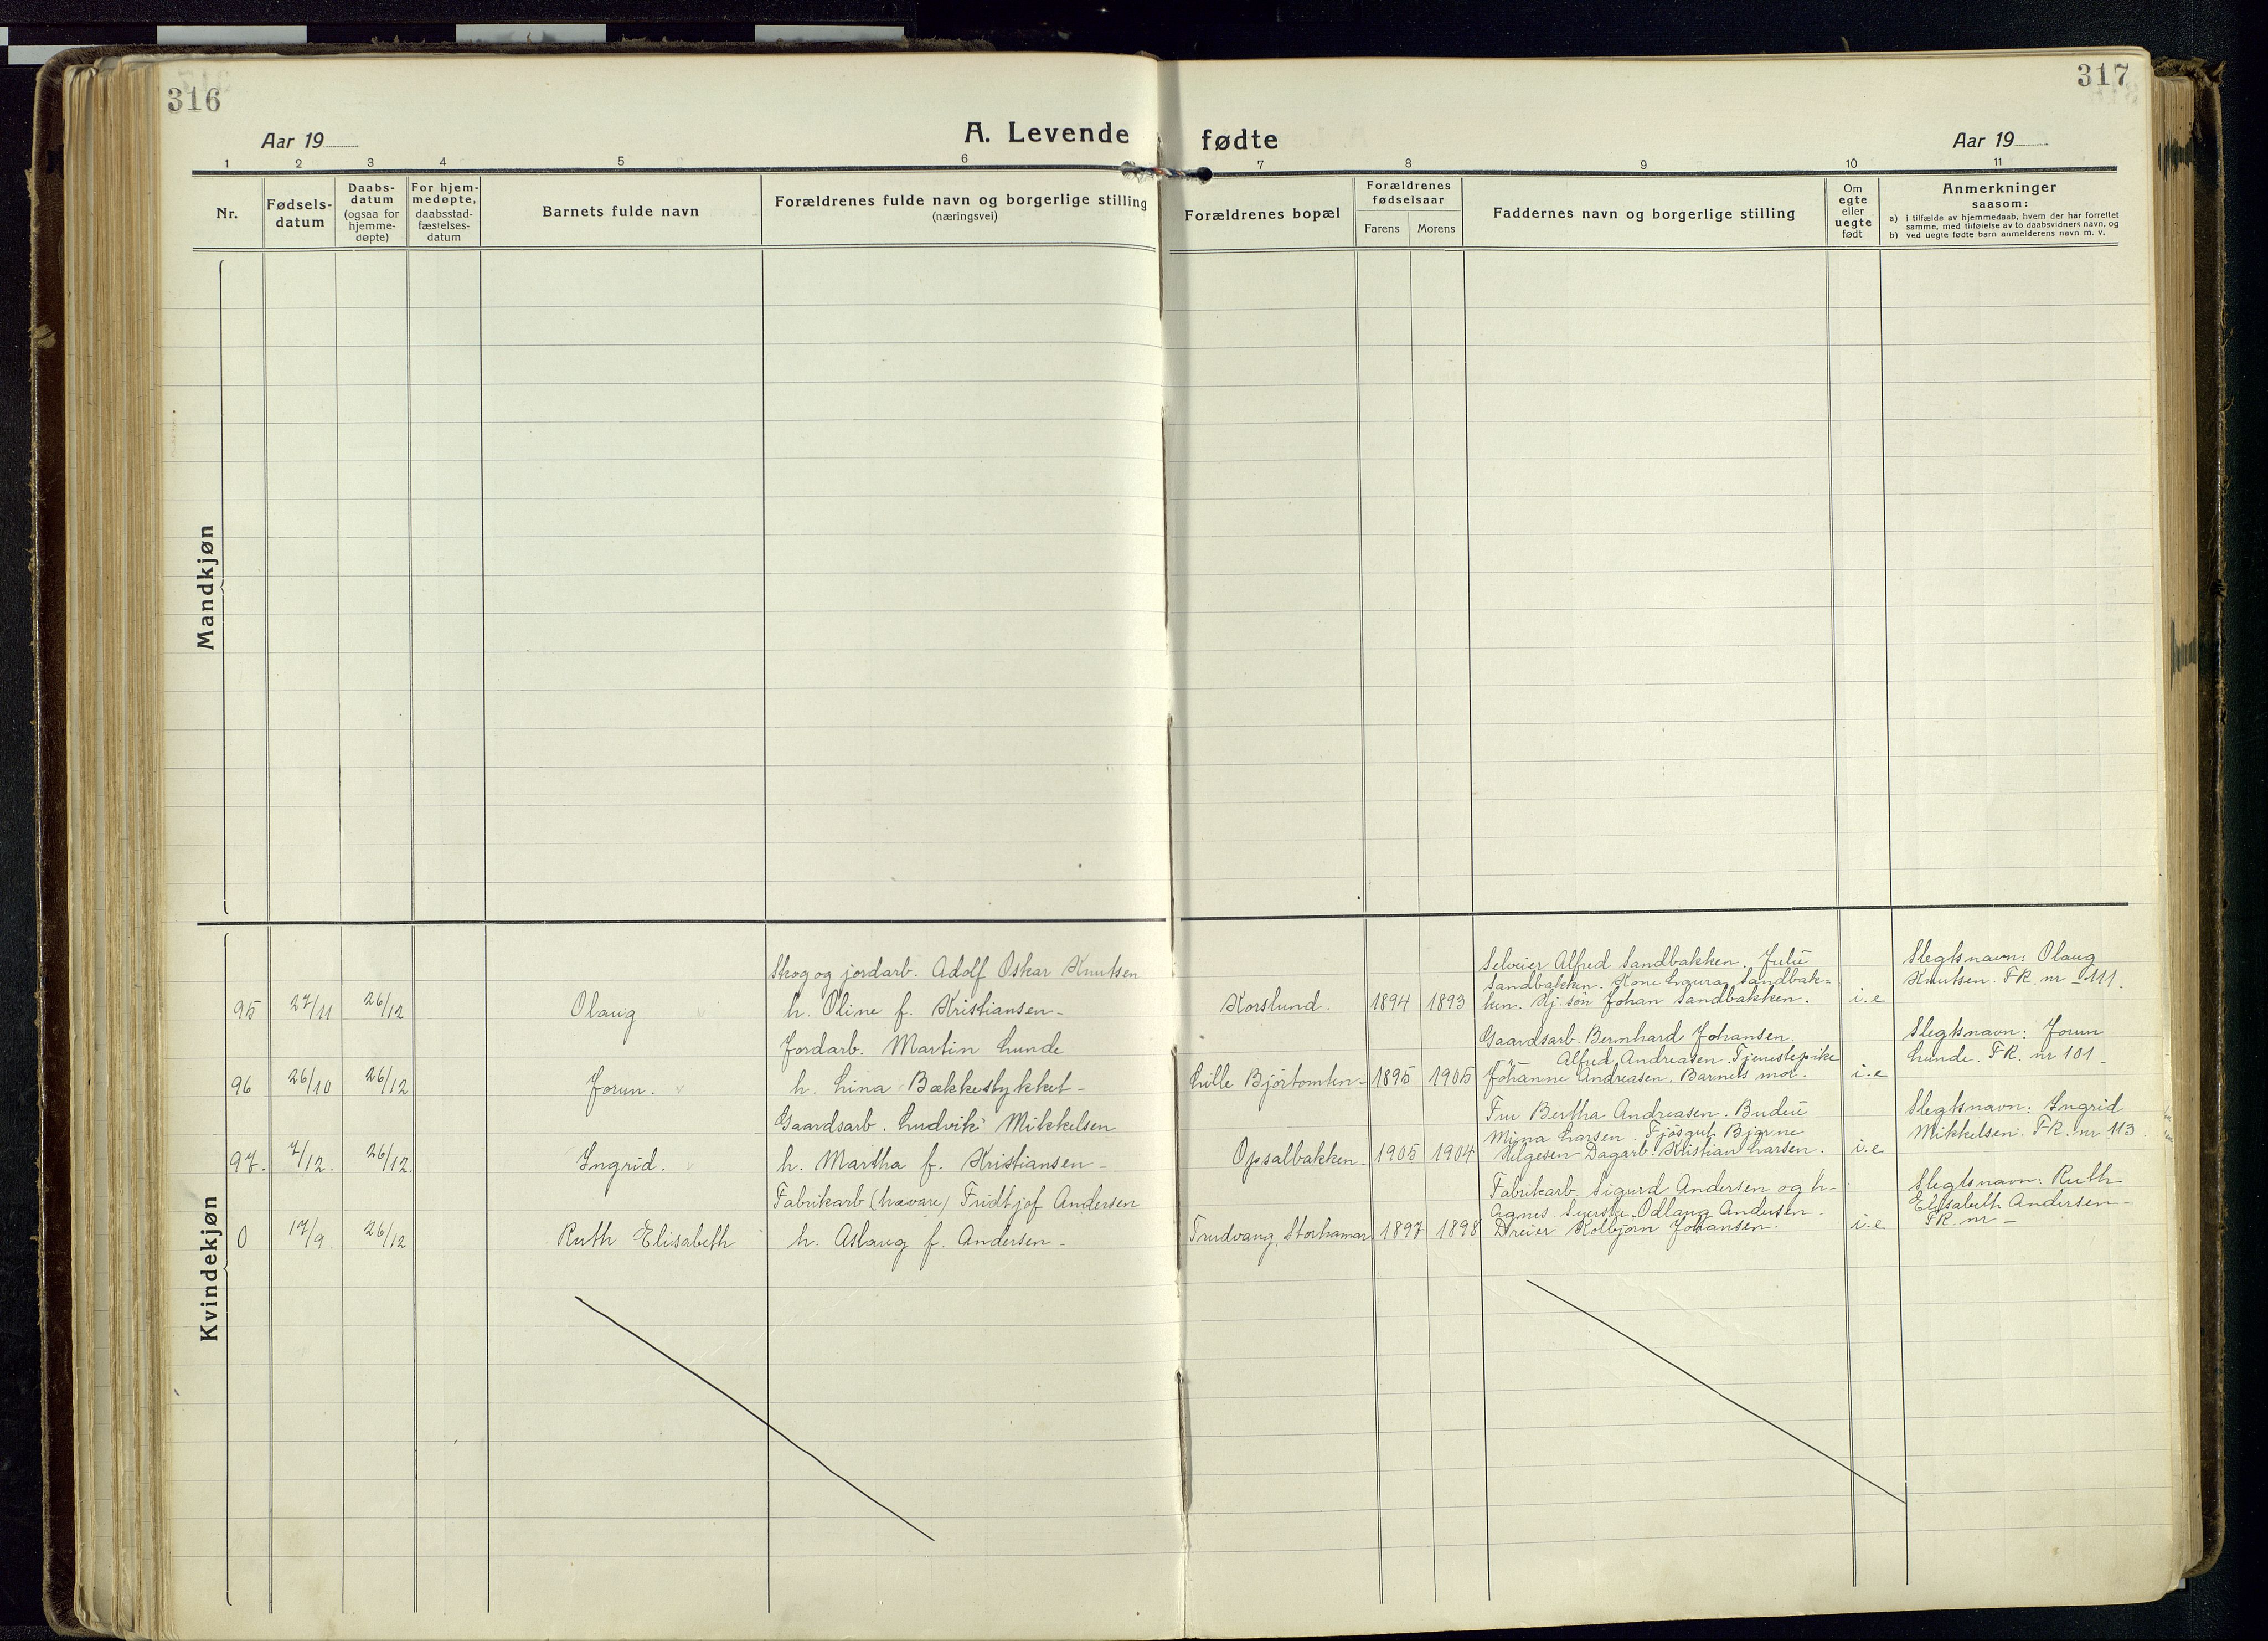 316
317
Aar 19
A. Levende fødte
Aar 19
1 2 3 4 5 6 7 8 9 10 11
Nr.
Fødsels-
datum
Daabs-
datum
(ogsaa for
hjemme-
døpte)
For hjem-
medøpte,
daabsstad-
fæstelses-
datum
Barnets fulde navn
Forældrenes fulde navn og borgerlige stilling
(næringsvei)
Forældrenes bopæl
Forældrenes
fødselsaar
Farens Morens
Faddernes navn og borgerlige stilling
Om
egte
eller
uegte
født
Anmerkninger
saasom:
a) i tilfælde av hjemmedaab, hvem der har forrettet
samme, med tilføielse av to daabsvidners navn, og
b) ved uegte fødte barn anmelderens navn m. v.
Mandkjøn
Kvindekjøn
95
27/11
26/12
Olaug
Skog og jordarb. Adolf Oskar Knutsen
h. Oline f. Kristiansen-
Korslund.
1894
1893
Selveier Alfred Sandbakken. Julie
Sandbakken. Kone Laura Sandbak=
ken. Hj. søn Johan Sandbakken.
i.e
Slegtsnavn: Olaug
Knutsen. FR. nr 111.
96
26/10
26/12
Jorun.
Jordarb. Martin Lunde
h. Lina Bækkestykket-
Lille Bjørtomten-
1895
1905
Gaardsarb. Bernhard Johansen.
Alfred Andreasen. Tjenestepike
Johanne Andreasen. Barnets mor.
i.e
Slegtsnavn: Jorun
Lunde. FR. nr 101-
97.
7/12.
26/12.
Ingrid.
Gaardsarb. Ludvik Mikkelsen
h. Martha f. Kristiansen-
Opsalbakken-
1905
1904
Fru Bertha Andreasen. Budeie
Mina Larsen. Fjøsgut Bjarne
Helgesen Dagarb. Kristian Larsen.
i.e
Slegtsnavn: Ingrid
Mikkelsen. FR. nr 113.
0
17/9
26/12
Ruth Elisabeth
Fabrikarb (hævare) Fridtjof Andersen
h. Aslaug f. Andersen-
Trudvang, Storhamar
1897
1898
Fabrikarb. Sigurd Andersen og h-
Agnes. Syerske Odlaug Andersen-
Dreier Kolbjørn Johansen.
i.e
Slegtsnavn: Ruth
Elisabeth Andersen-
FR. nr -